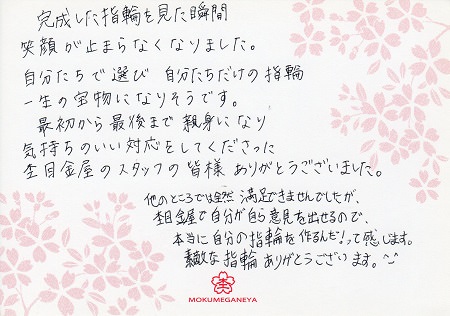 完成した指輪を見た瞬間
笑顔が止まらなくなりました。
自分たちで選び 自分たちだけの指輪
一生の宝物になりそうです。
最初から最後まで親身になり
気持ちのいい対応をしてくださった
杢目金屋のスタッフの皆様ありがとうございました。
他のところでは全然満足できませんでしたが、
杢目金屋で自分が自ら意見を出せるので、
本当に自分の指輪を作るんだ!って感じます。
素敵な指輪ありがとうございます。
MOKUMEGANEYA